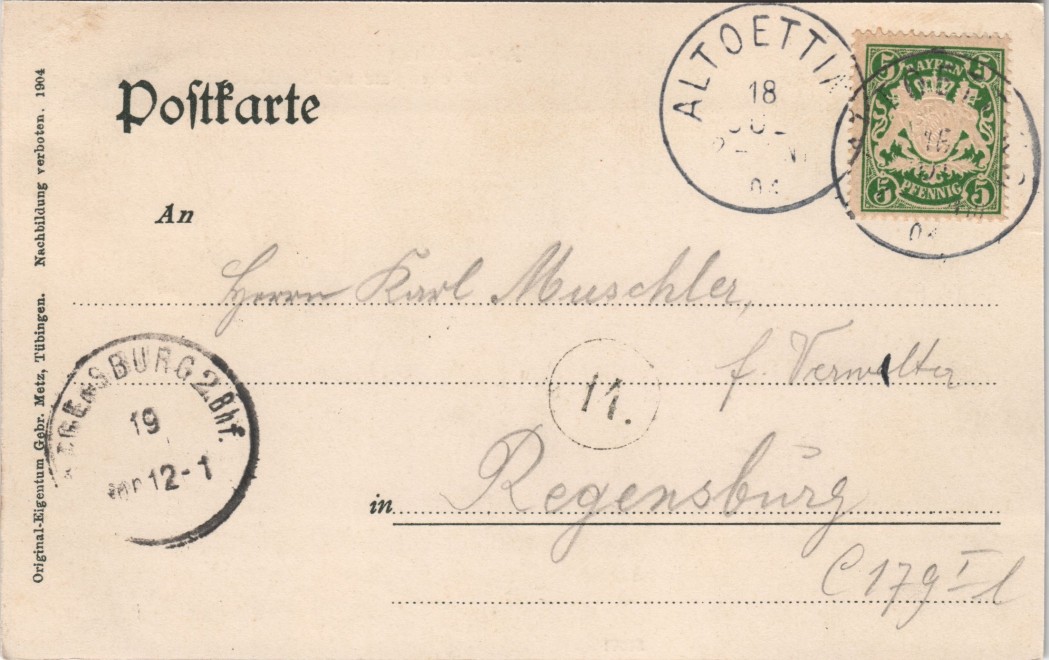 Postkarte
ALTOETTIN
18
JUL
04
5 BAYERN 5
5 PFENNIG 5
18
04
An
Herrn Karl Muschler,
f. Verwalter
11.
REGENSBURG 2.Bhf.
19
Vor 12-1
in Regensburg
C 179 I l
Original-Eigentum Gebr. Metz, Tübingen. Nachbildung verboten. 1904